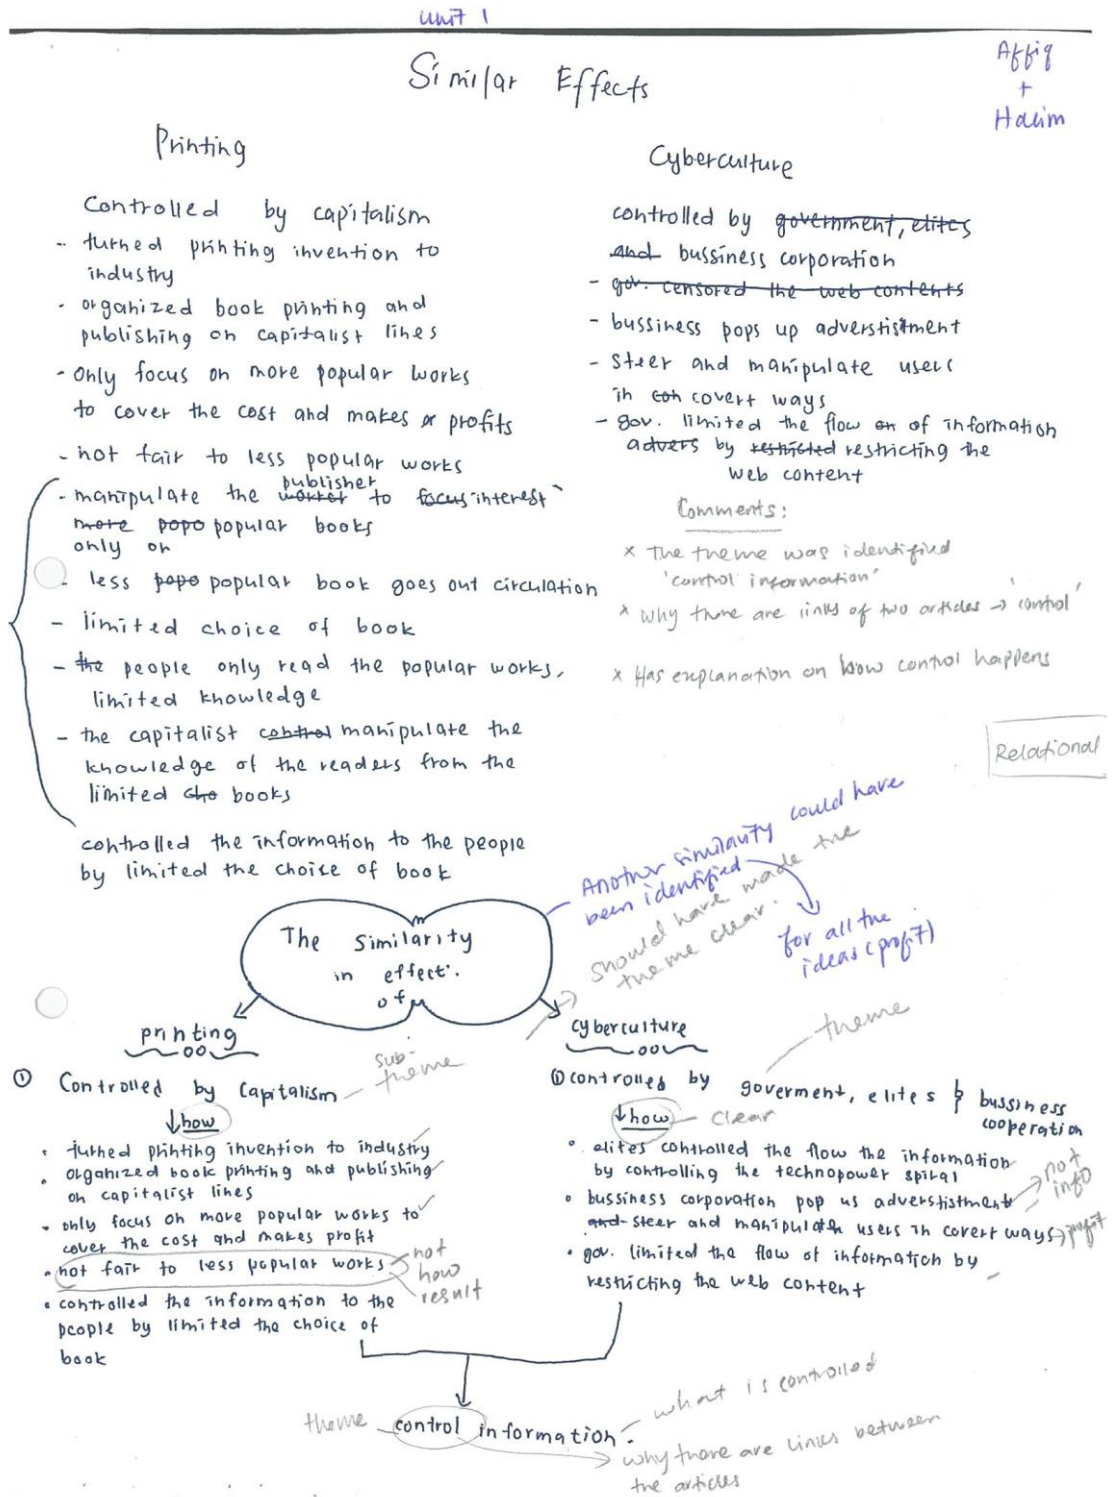 Unit 1
Similar Effects
Affiq
+
Halim
Printing
Controlled by capitalism
- turned printing invention to
industry
- organized book printing and
publishing on capitalist lines
- only focus on more popular works
to cover the cost and makes profits
- not fair to less popular works
- manipulate the worker publisher to focus interest
more popo popular books
only on
- less popo popular book goes out circulation
- limited choice of book
- the people only read the popular works,
limited knowledge
- the capitalist control manipulate the
knowledge of the readers from the
limited cho books
controlled the information to the people
by limited the choice of book
Cyberculture
controlled by government, elites
and bussiness corporation
- gov. censored the web contents
- bussiness pops up adverstistment
- steer and manipulate users
in con covert ways
- gov. limited the flow on of information
advers by restricted restricting the
web content
Comments:
x The theme was identified
'control information'
x why there are links of two articles → 'control'
x Has explanation on how control happens
Relational
Another similarity could have
been identified
for all the
ideas (profit)
should have made the
theme clear.
The Similarity
in effect.
of
printing
① Controlled by Capitalism
sub-
theme
how
• turned printing invention to industry
• organized book printing and publishing
on capitalist lines
• only focus on more popular works to
cover the cost and makes profit
• not fair to less popular works
not
how
result
• controlled the information to the
people by limited the choice of
book
cyberculture
theme
① controlled by goverment, elites & bussiness
cooperation
how
clear
• elites controlled the flow the information
by controlling the technopower spiral
• bussiness corporation pop us adverstistment
not
info
and steer and manipulate users in covert ways → profit
• gov. limited the flow of information by
restricting the web content
theme
control information.
what is controlled
why there are links between
the articles